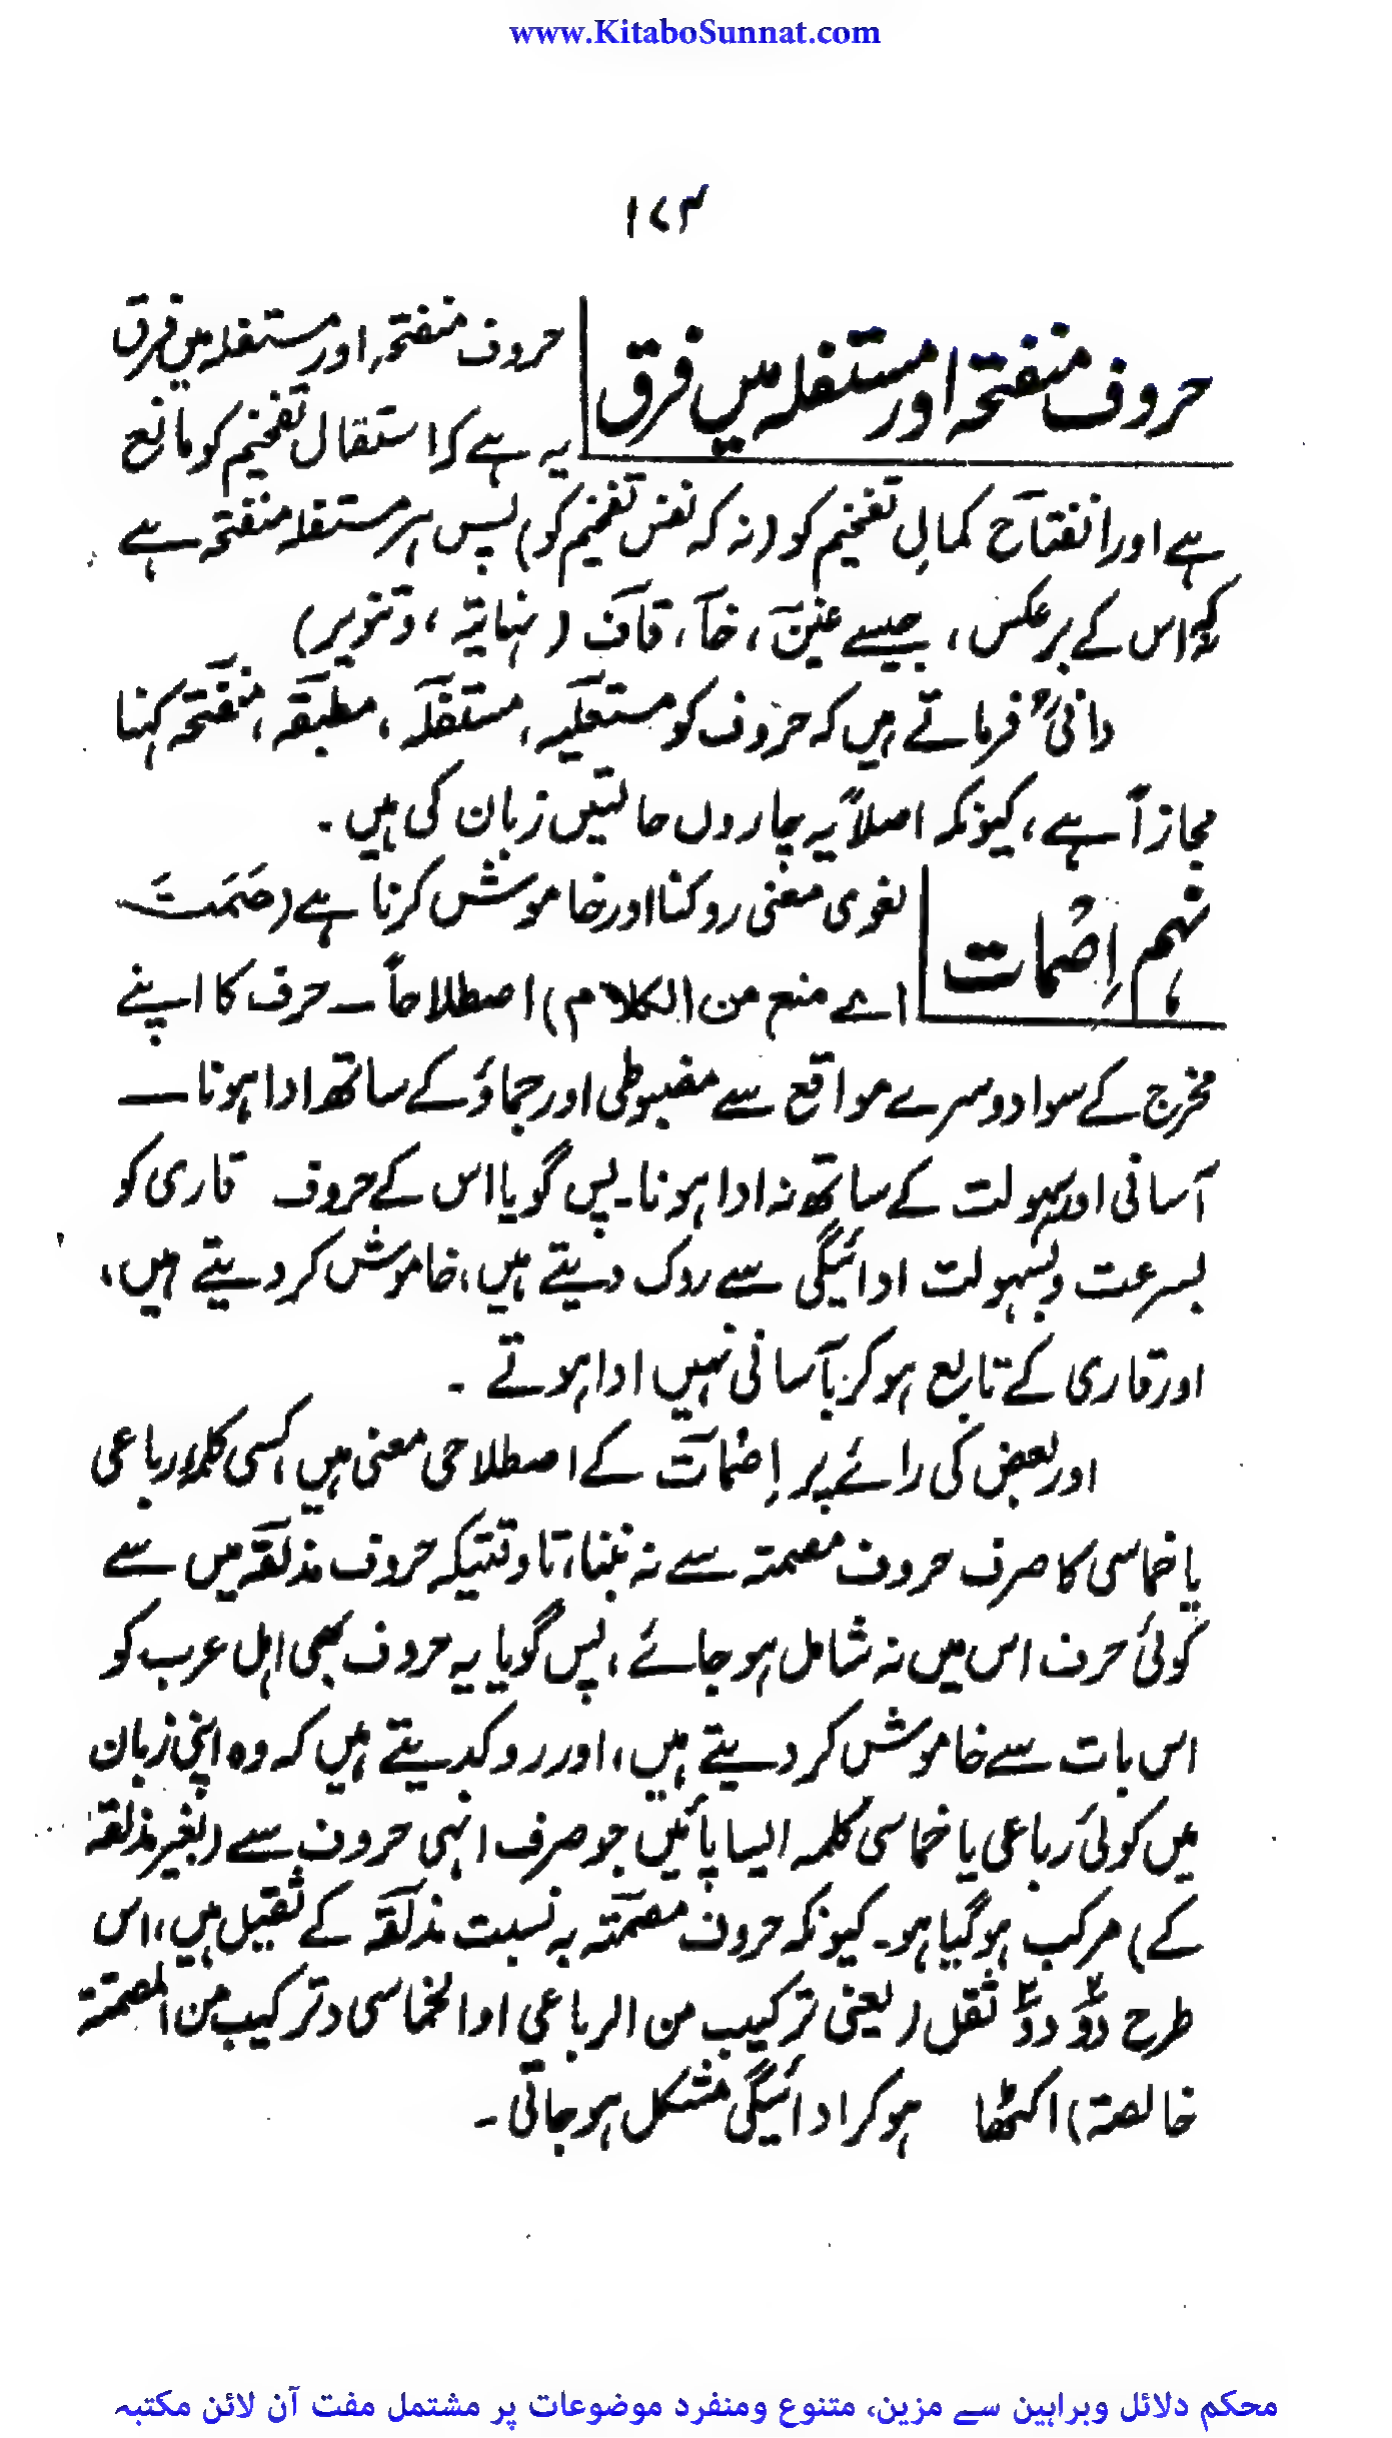 www.KitaboSunnat.com
۱۷۳
حروف منفتحہ اور مستفلہ میں فرق
حروف منفتحہ اور مستفلہ میں فرق
یہ ہے کہ استفال تفخیم کو مانع
ہے اور انفتاح کمالِ تفخیم کو (نہ کہ نفس تفخیم کو) پس ہر مستفلہ منفتحہ ہے
اس کے برعکس، جیسے غین، خآ، قاف (نہایۃ، وتنویر)
دانیؒ فرماتے ہیں کہ حروف کو مستعلیہ، مستفلہ، مطبقہ، منفتحہ کہنا
مجازاً ہے، کیونکہ اصلاً یہ چاروں حالتیں زبان کی ہیں۔
نہم اِصْمات
لغوی معنی روکنا اور خاموش کرنا ہے (صَمَتَ
اے منع من الکلام) اصطلاحاً — حرف کا اپنے
مخرج کے سوا دوسرے مواقع سے مضبوطی اور جماؤ کے ساتھ ادا ہونا —
آسانی اور سہولت کے ساتھ نہ ادا ہونا۔ پس گویا اس کے حروف قاری کو
بسرعت وبسہولت ادائیگی سے روک دیتے ہیں، خاموش کر دیتے ہیں،
اور قاری کے تابع ہو کر بآسانی نہیں ادا ہوتے ۔
اور بعض کی رائے پر اِصْمات کے اصطلاحی معنی ہیں، کسی کلمہ رباعی
یا خماسی کا صرف حروف مصمتہ سے نہ بننا، تا وقتیکہ حروف مذلقہ میں سے
کوئی حرف اس میں نہ شامل ہو جائے، پس گویا یہ حروف بھی اہل عرب کو
اس بات سے خاموش کر دیتے ہیں، اور روک دیتے ہیں کہ وہ اپنی زبان
میں کوئی رباعی یا خماسی کلمہ ایسا پائیں جو صرف انہی حروف سے (بغیر مذلقہ
کے) مرکب ہوگیا ہو۔ کیونکہ حروف مصمتہ بہ نسبت مذلقہ کے ثقیل ہیں، اس
طرح دو دو ثقل (یعنی ترکیب من الرباعی او الخماسی وترکیب من المصمتۃ
خالصۃ) اکٹھا ہو کر ادائیگی مشکل ہو جاتی ۔
محکم دلائل وبراہین سے مزین، متنوع ومنفرد موضوعات پر مشتمل مفت آن لائن مکتبہ